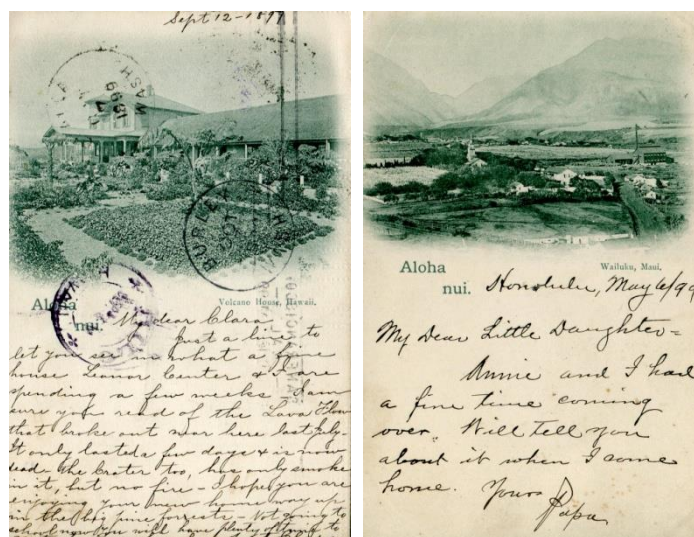 Sept 12-1899
WASH
1899
BURLEY
WASH
Aloha
nui.
Volcano House, Hawaii.
My dear Clara
Just a line to
let you see in what a fine
house Leanor Center & I are
spending a few weeks - I am
sure you read of the Lava Flow
that broke out near here last July.
It only lasted a few days & is now
dead. The Crater too, has only smoke
in it, but no fire - I hope you are
enjoying your new home way up
in the big pine forrests - Not going to
school now you will have plenty of time to
Aloha
nui.
Wailuku, Maui.
Honolulu, May 6/99
My Dear Little Daughter =
Annie and I had
a fine time coming
over. Will tell you
about it when I come
home. Yours
Papa